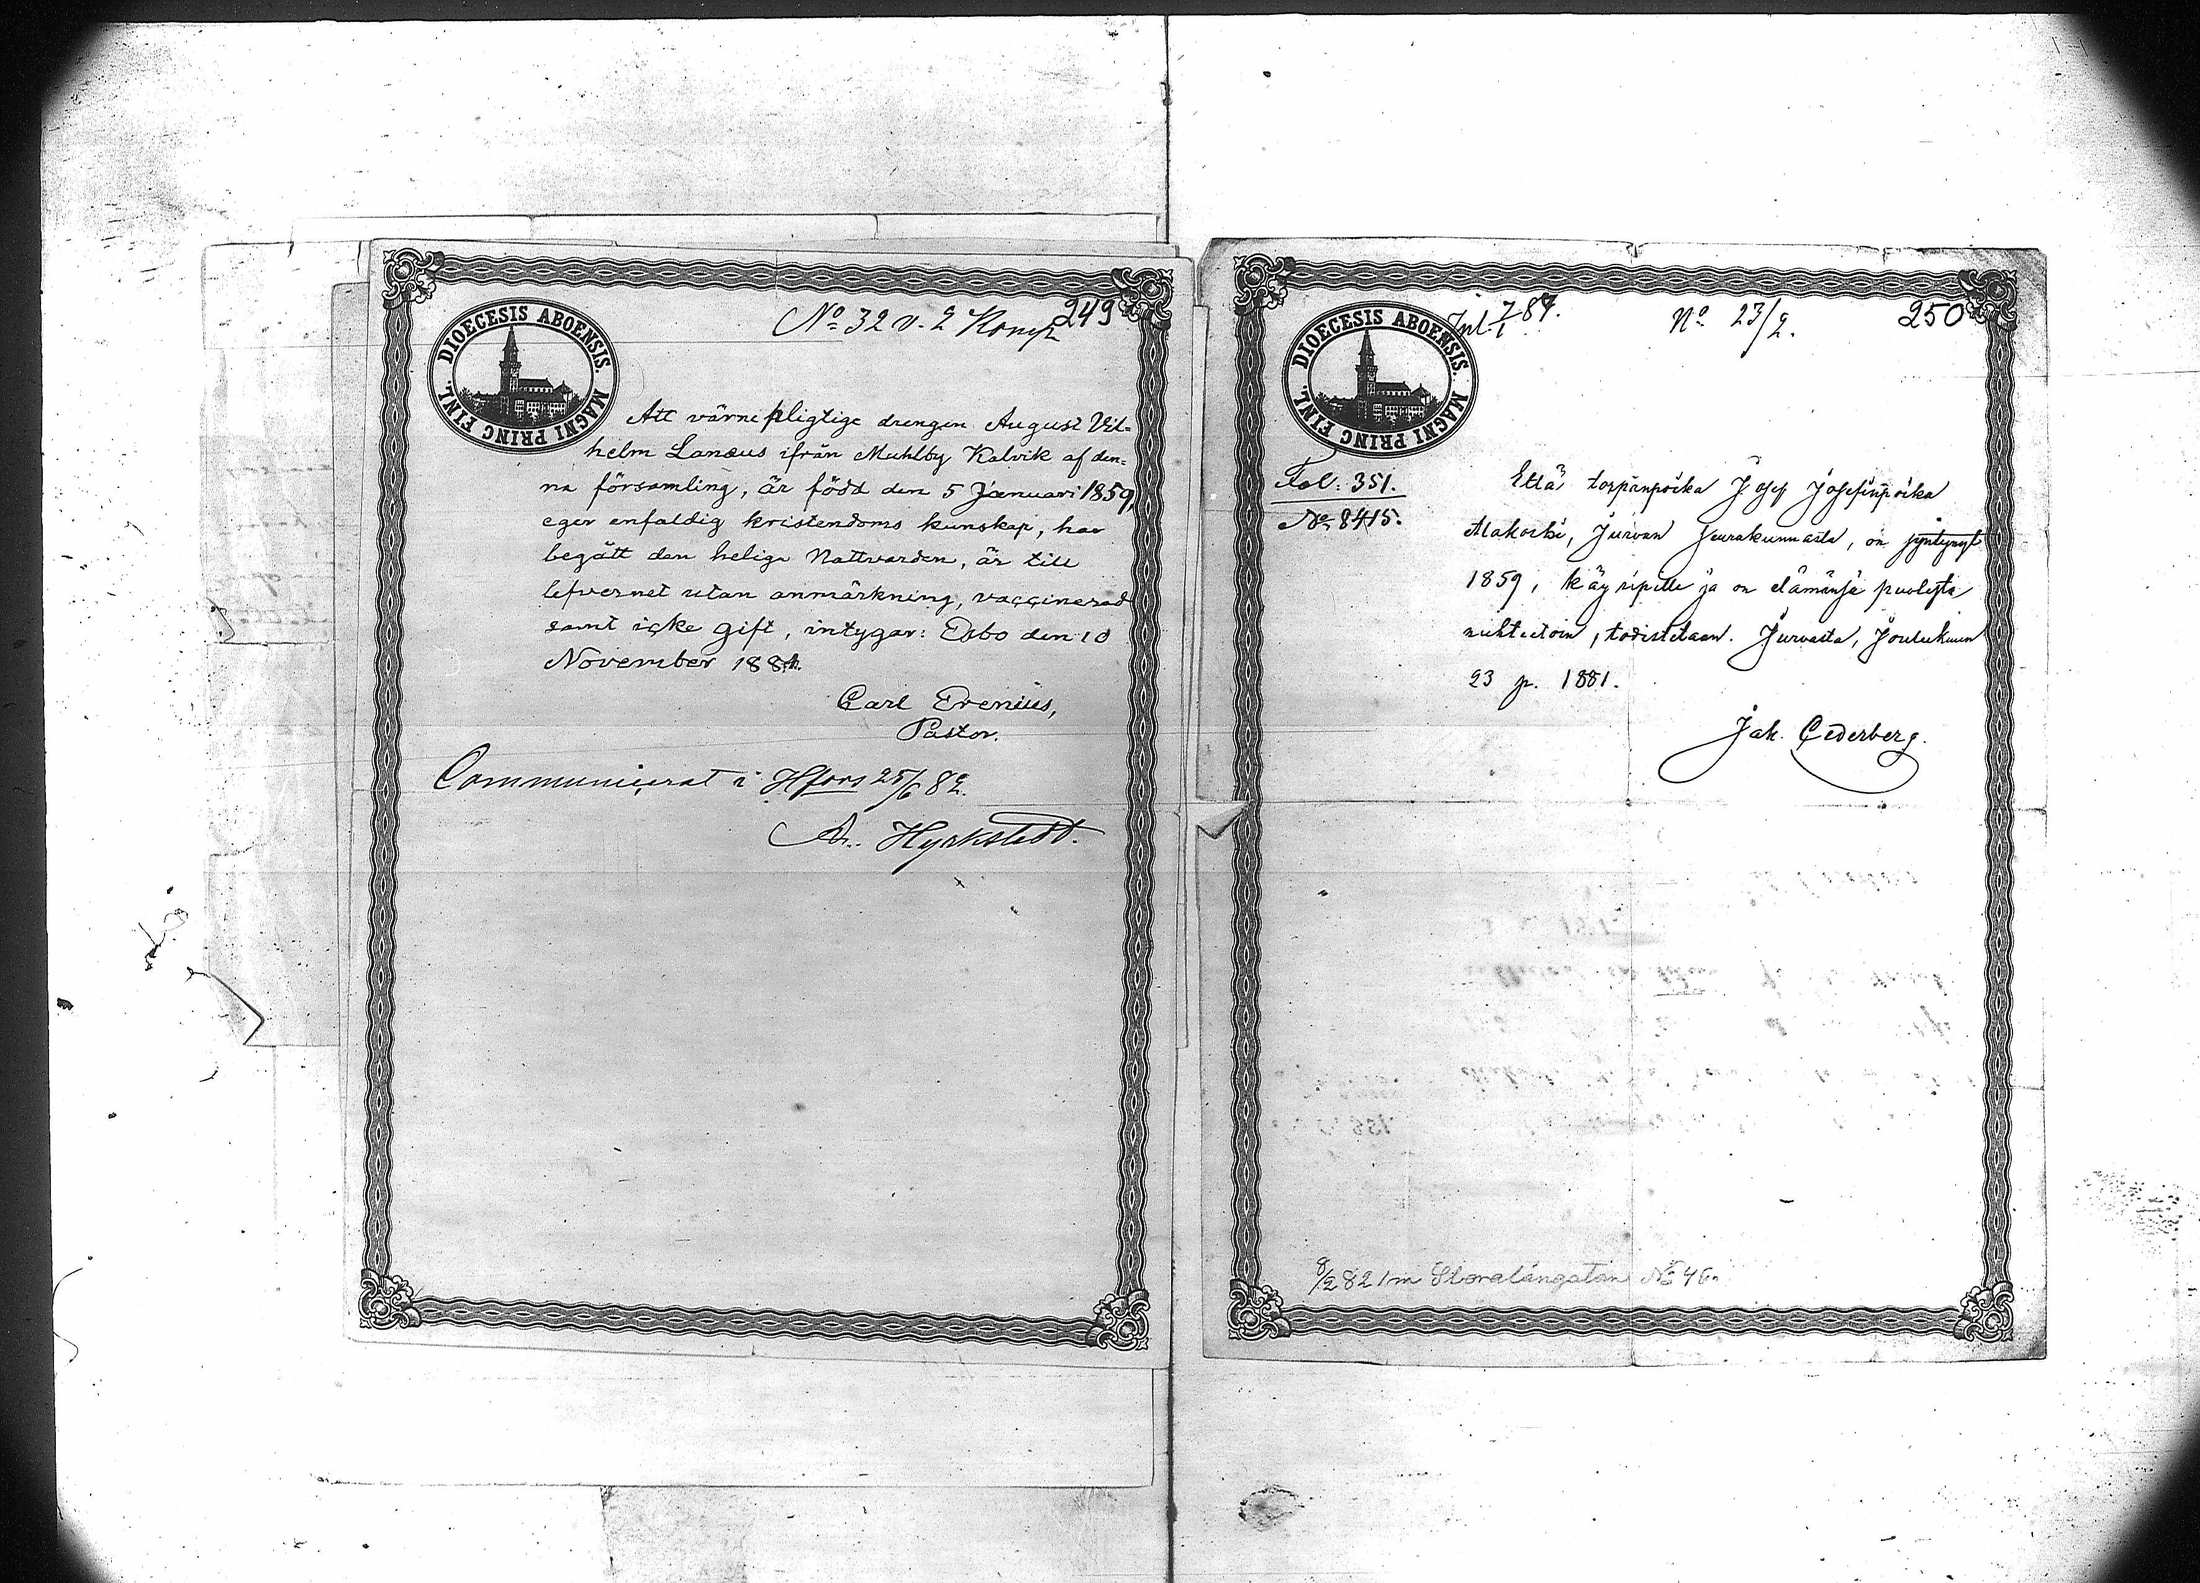 No 32 v. 2 Komp
249
DIOECESIS ABOENSIS. MAGNI PRINC FINL.
Att värnepligtige drengen August Vil-
helm Lanæus ifrån Muhlby Kalvik af den-
na församling, är född den 5 Januari 1859,
eger enfaldig kristendoms kunskap, har
begått den helige Nattvarden, är till
lefvernet utan anmärkning, vaccinerad
samt icke gift, intygar: Esbo den 10
November 188
Carl Erenius,
Pastor.
Communicerat i Hfors 25/6 82.
Hyrkstedt.
Inl. 7/1 87.
No 23/2.
250
DIOECESIS ABOENSIS. MAGNI PRINC FINL.
Fol: 351.
No 8415.
Että torpanpoika Josef Josefinpoika
Alakoski, Jurvan seurakunnasta, on syntynyt
1859, käy ripille ja on elämänsä puolesta
nuhteetoin, todistetaan. Jurvasta, Joulukuun
23 p. 1881.
Jak. Cederberg.
8/2 82 Stora långatan No 46